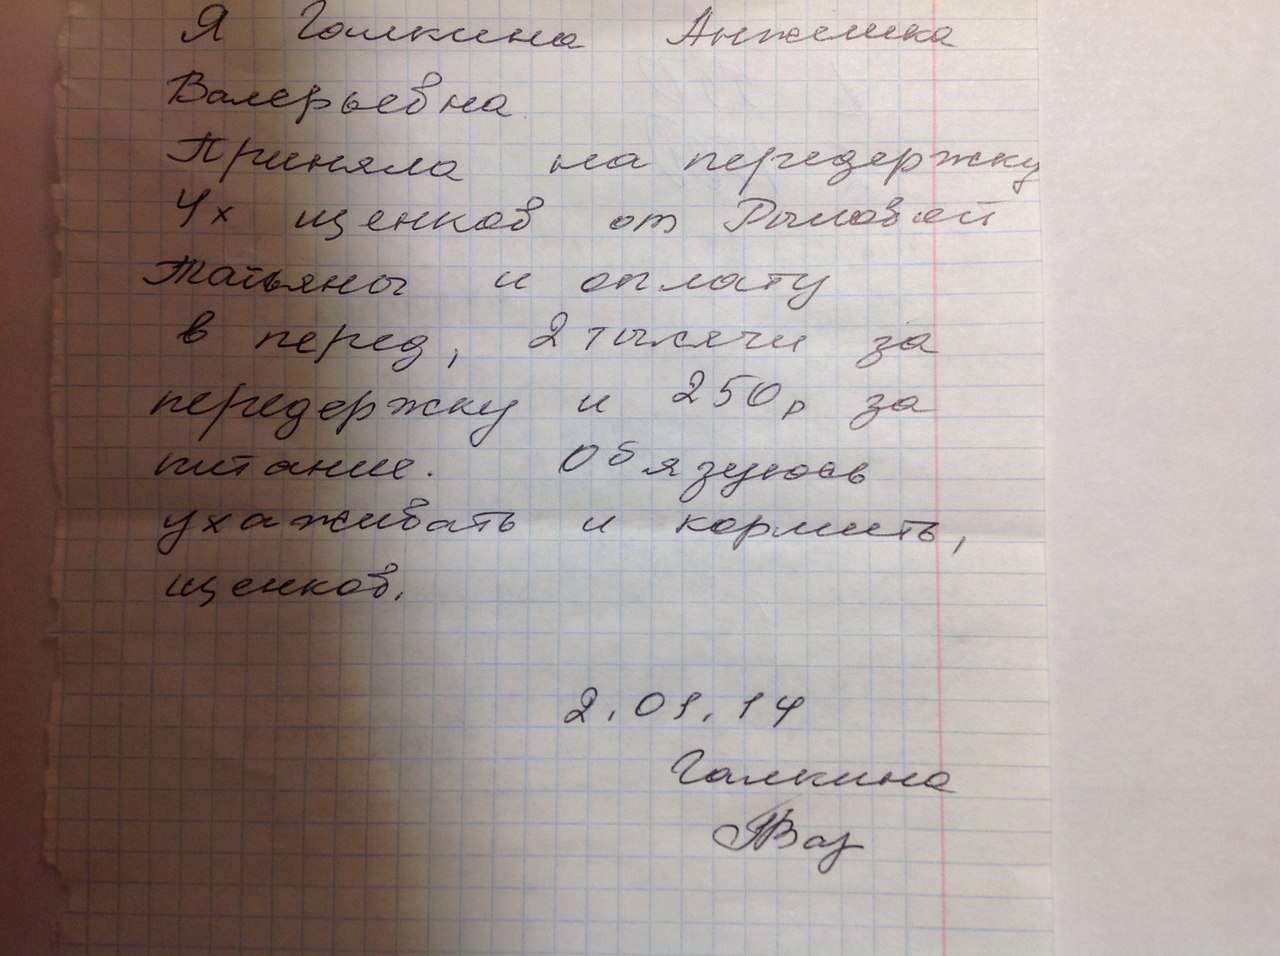 Я Галкина Анжелика
Валерьевна
Приняла на передержку
4х щенков от Рымовой
Татьяны и оплату
в перед, 2 тысячи за
передержку и 250р за
питание. Обязуюсь
ухаживать и кормить,
щенков.
2.01.14
Галкина